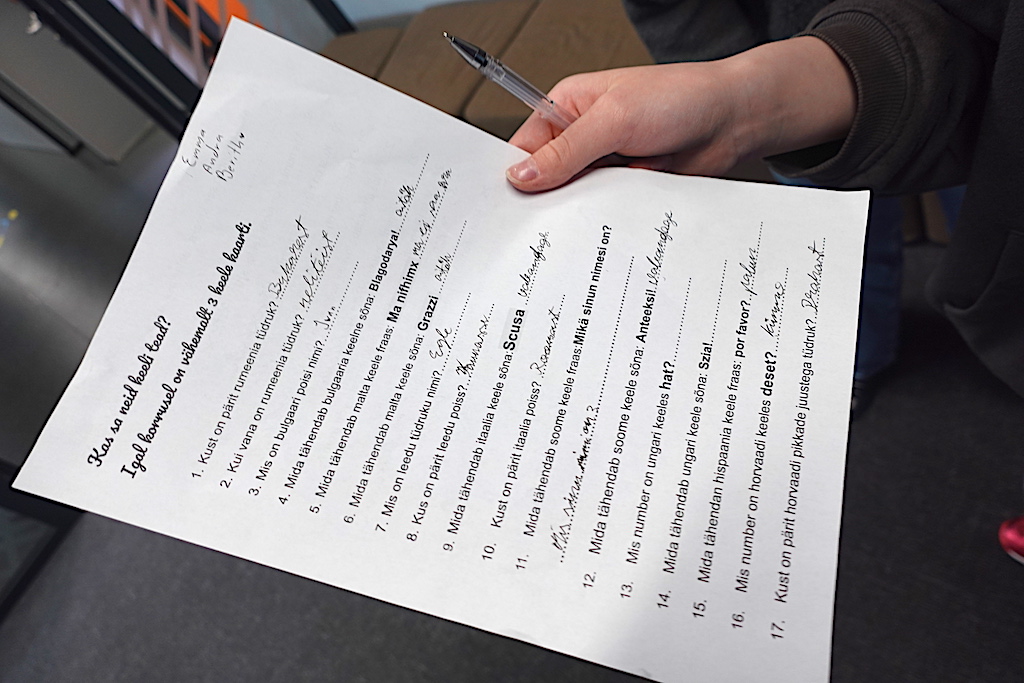 Emma
Andra
Berith
Kas sa neid keeli tead?
Igal korrusel on vähemalt 3 keele kaarti.
1. Kust on pärit rumeenia tüdruk? Bukarest
2. Kui vana on rumeenia tüdruk?
3. Mis on bulgaari poisi nimi? Ivan
4. Mida tähendab bulgaaria keelne sõna: Blagodarya! aitäh
5. Mida tähendab malta keele fraas: Ma nifhimx ma ei saa aru
6. Mida tähendab malta keele sõna: Grazzi aitäh
7. Mis on leedu tüdruku nimi? Egle
8. Kus on pärit leedu poiss?
9. Mida tähendab itaalia keele sõna: Scusa vabandage
10. Kust on pärit itaalia poiss?
11. Mida tähendab soome keele fraas: Mikä sinun nimesi on?
Mis sinu nimi on?
12. Mida tähendab soome keele sõna: Anteeksi! Vabandage
13. Mis number on ungari keeles hat?
14. Mida tähendab ungari keele sõna: Szia!
15. Mida tähendan hispaania keele fraas: por favor? palun
16. Mis number on horvaadi keeles deset? kümme
17. Kust on pärit horvaadi pikkade juustega tüdruk?